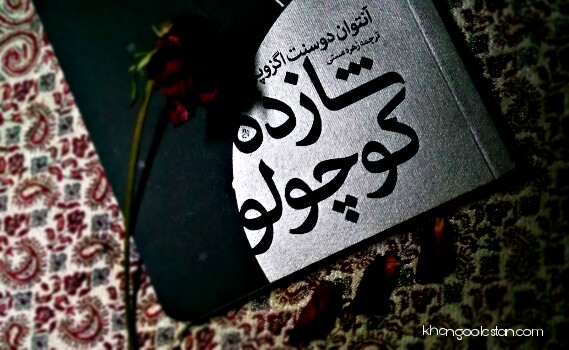 آنتوان دوسنت اگزوپ
ترجمه زهره مستی
شازده
کوچولو
khangoolestan.com